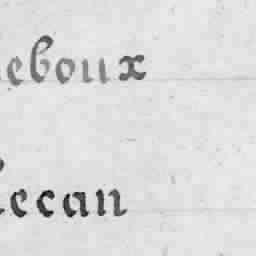 eboux
lecan